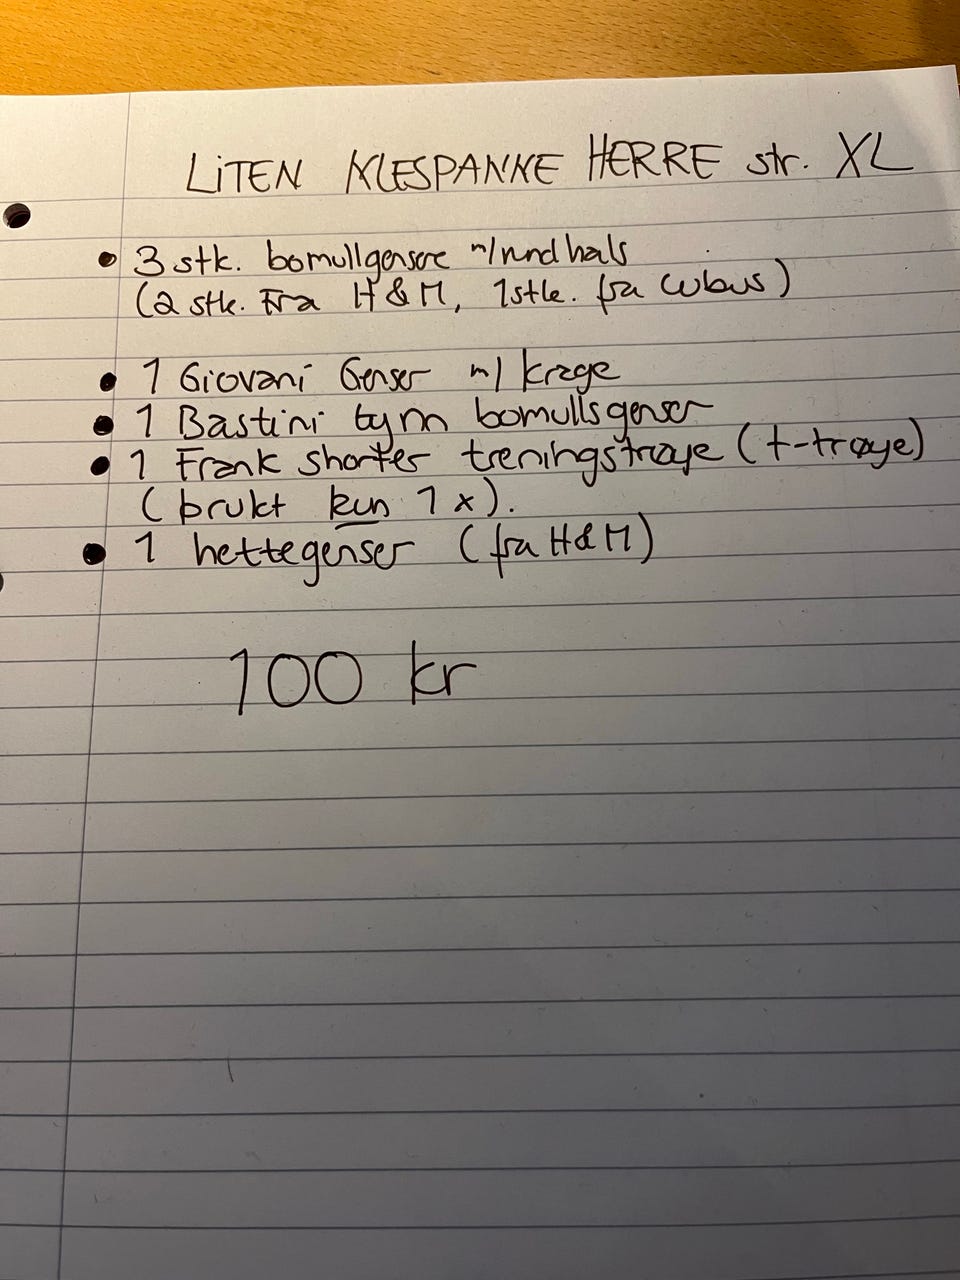 LiTEN KLESPAKKE HERRE str. XL
• 3 stk. bomullgensere m/rund hals
(2 stk. Fra H & M, 1 stk. fra Cubus)
• 1 Giovani Genser m/ krage
• 1 Bastini tynn bomullsgenser
• 1 Frank shorter treningstrøye (t-trøye)
(brukt kun 1 x).
• 1 hettegenser (fra H & M)
100 kr